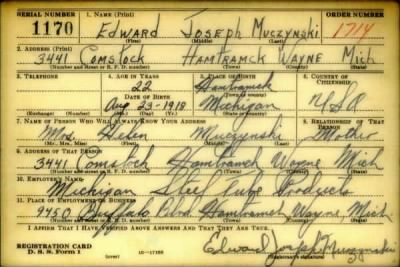 SERIAL NUMBER 1. NAME (Print) ORDER NUMBER
1170 EDWARD JOSEPH MUCZYNSKI 1714
(First) (Middle) (Last)
2. ADDRESS (Print)
3441 COMSTOCK HAMTRAMCK WAYNE MICH
(Number and street or R. F. D. number) (Town) (County) (State)
3. TELEPHONE 4. AGE IN YEARS 5. PLACE OF BIRTH 6. COUNTRY OF CITIZENSHIP
22 Hamtramck
DATE OF BIRTH
Aug 23-1918 Michigan USA
(Exchange) (Number) (Mo.) (Day) (Yr.) (State or country)
7. NAME OF PERSON WHO WILL ALWAYS KNOW YOUR ADDRESS 8. RELATIONSHIP OF THAT PERSON
Mrs. Helen Muczynski Mother
(Mr., Mrs., Miss) (First) (Middle) (Last)
9. ADDRESS OF THAT PERSON
3441 Comstock Hamtramck Wayne Mich
(Number and street or R. F. D. number) (Town) (County) (State)
10. EMPLOYER'S NAME
Michigan Steel Tube Products
11. PLACE OF EMPLOYMENT OR BUSINESS
9450 Buffalo Hamtramck Wayne, Mich
(Number and street or R. F. D. number) (Town) (County) (State)
I AFFIRM THAT I HAVE VERIFIED ABOVE ANSWERS AND THAT THEY ARE TRUE.
REGISTRATION CARD
D. S. S. Form 1 (over) 16-17105 Edward Joseph Muczynski
(Registrant's signature)